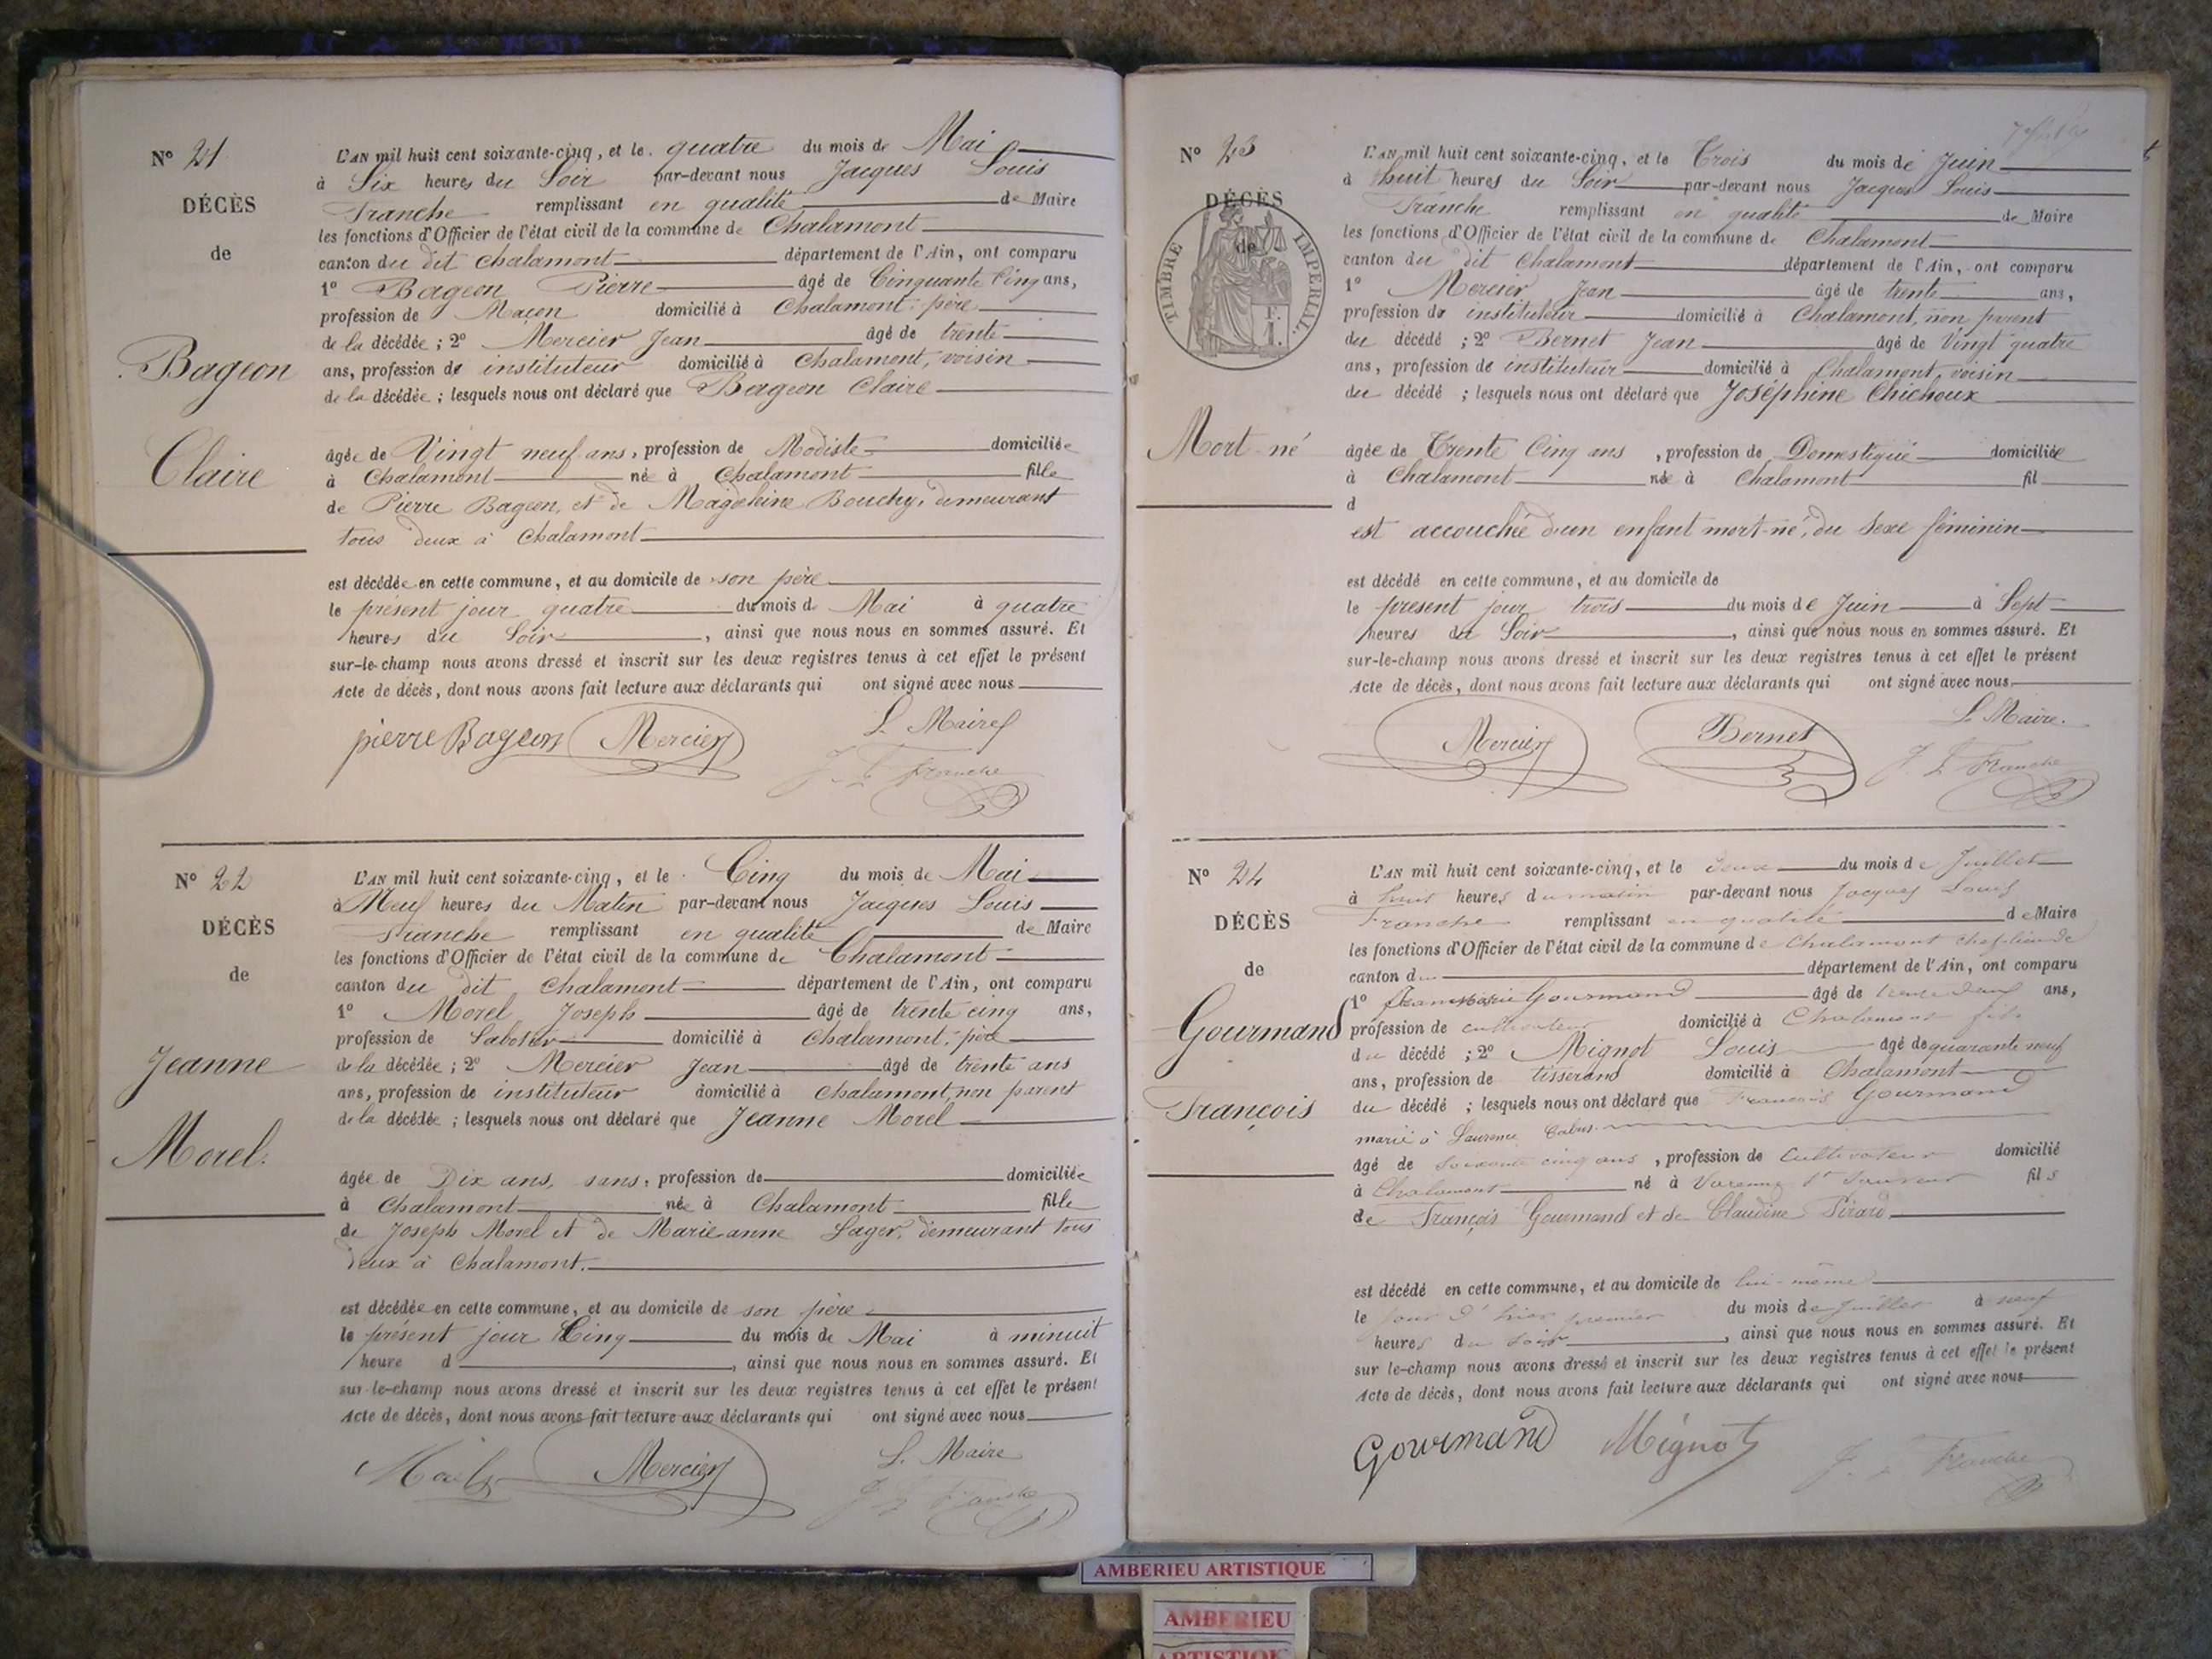 N° 21
DÉCÈS
de
Bageon
Claire
L'AN mil huit cent soixante-cinq, et le quatre du mois de Mai
à Six heures du Soir par-devant nous Jacques Louis
Franche remplissant en qualité de Maire
les fonctions d'Officier de l'état civil de la commune de Chalamont
canton du dit chalamont département de l'Ain, ont comparu
1° Bageon Pierre âgé de Cinquante Cinq ans,
profession de Maçon domicilié à Chalamont, père
de la décédée ; 2° Mercier Jean âgé de trente
ans, profession de instituteur domicilié à Chalamont, voisin
de la décédée ; lesquels nous ont déclaré que Bageon Claire
âgée de Vingt neuf ans, profession de Modiste domiciliée
à Chalamont née à Chalamont fille
de Pierre Bageon, et de Magdeleine Bouchy, demeurant
tous deux à Chalamont
est décédée en cette commune, et au domicile de son père
le présent jour quatre du mois de Mai à quatre
heures du Soir, ainsi que nous nous en sommes assuré. Et
sur-le-champ nous avons dressé et inscrit sur les deux registres tenus à cet effet le présent
Acte de décès, dont nous avons fait lecture aux déclarants qui ont signé avec nous
pierre Bageon Mercier L. Maire
J. L. Franche
N° 22
DÉCÈS
de
Jeanne
Morel.
L'AN mil huit cent soixante-cinq, et le Cinq du mois de Mai
à Neuf heures du Matin par-devant nous Jacques Louis
Franche remplissant en qualité de Maire
les fonctions d'Officier de l'état civil de la commune de Chalamont
canton du dit Chalamont département de l'Ain, ont comparu
1° Morel Joseph âgé de trente cinq ans,
profession de Sabotier domicilié à Chalamont, père
de la décédée ; 2° Mercier Jean âgé de trente ans
ans, profession de instituteur domicilié à Chalamont, non parent
de la décédée ; lesquels nous ont déclaré que Jeanne Morel
âgée de Dix ans, sans, profession de domiciliée
à Chalamont née à Chalamont fille
de Joseph Morel et de Marie anne Lager, demeurant tous
deux à Chalamont.
est décédée en cette commune, et au domicile de son père
le présent jour Cinq du mois de Mai à minuit
heure d, ainsi que nous nous en sommes assuré. Et
sur-le-champ nous avons dressé et inscrit sur les deux registres tenus à cet effet le présent
Acte de décès, dont nous avons fait lecture aux déclarants qui ont signé avec nous
Mercier L. Maire
J. L. Franche
N° 23
DÉCÈS
de
TIMBRE IMPERIAL
Mort-né
L'AN mil huit cent soixante-cinq, et le Trois du mois de Juin
à huit heures du Soir par-devant nous Jacques Louis
Franche remplissant en qualité de Maire
les fonctions d'Officier de l'état civil de la commune de Chalamont
canton du dit Chalamont département de l'Ain, ont comparu
1° Mercier Jean âgé de trente ans,
profession de instituteur domicilié à Chalamont, non parent
du décédé ; 2° Bernet Jean âgé de Vingt quatre
ans, profession de instituteur domicilié à Chalamont, voisin
du décédé ; lesquels nous ont déclaré que Joséphine Chichoux
âgée de Trente Cinq ans, profession de Domestique domiciliée
à Chalamont née à Chalamont fil
d
est accouchée d'un enfant mort-né, du Sexe féminin
est décédé en cette commune, et au domicile de
le présent jour trois du mois de Juin à Sept
heures du Soir, ainsi que nous nous en sommes assuré. Et
sur-le-champ nous avons dressé et inscrit sur les deux registres tenus à cet effet le présent
Acte de décès, dont nous avons fait lecture aux déclarants qui ont signé avec nous
Mercier Bernet L. Maire.
J. L. Franche
N° 24
DÉCÈS
de
Gourmand
François
L'AN mil huit cent soixante-cinq, et le deux du mois de Juillet
à huit heures du matin par-devant nous Jacques Louis
Franche remplissant en qualité de Maire
les fonctions d'Officier de l'état civil de la commune de Chalamont chef lieu de
canton d département de l'Ain, ont comparu
1° Gourmand âgé de ans,
profession de cultivateur domicilié à Chalamont fils
du décédé ; 2° Mignot Louis âgé de quarante neuf
ans, profession de tisserand domicilié à Chalamont
du décédé ; lesquels nous ont déclaré que François Gourmand
marié à Laurence
âgé de soixante cinq ans, profession de Cultivateur domicilié
à Chalamont né à Varenne St Sauveur fils
de François Gourmand et de Claudine
est décédé en cette commune, et au domicile de lui-même
le jour d'hier premier du mois de Juillet à neuf
heures du soir, ainsi que nous nous en sommes assuré. Et
sur le-champ nous avons dressé et inscrit sur les deux registres tenus à cet effet le présent
Acte de décès, dont nous avons fait lecture aux déclarants qui ont signé avec nous
Gourmand Mignot J. L. Franche
AMBERIEU ARTISTIQUE
AMBERIEU
ARTISTIQUE